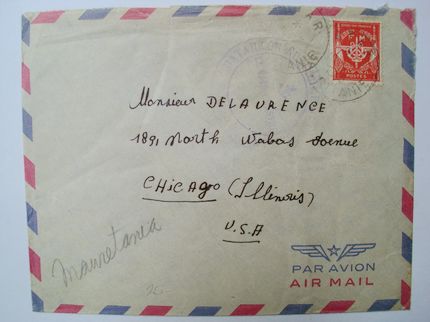 POSTES
Monsieur DELAURENCE
1891 North Wabas Avenue
CHICAGO (Illinois)
U.S.A
Mauretania
PAR AVION
AIR MAIL